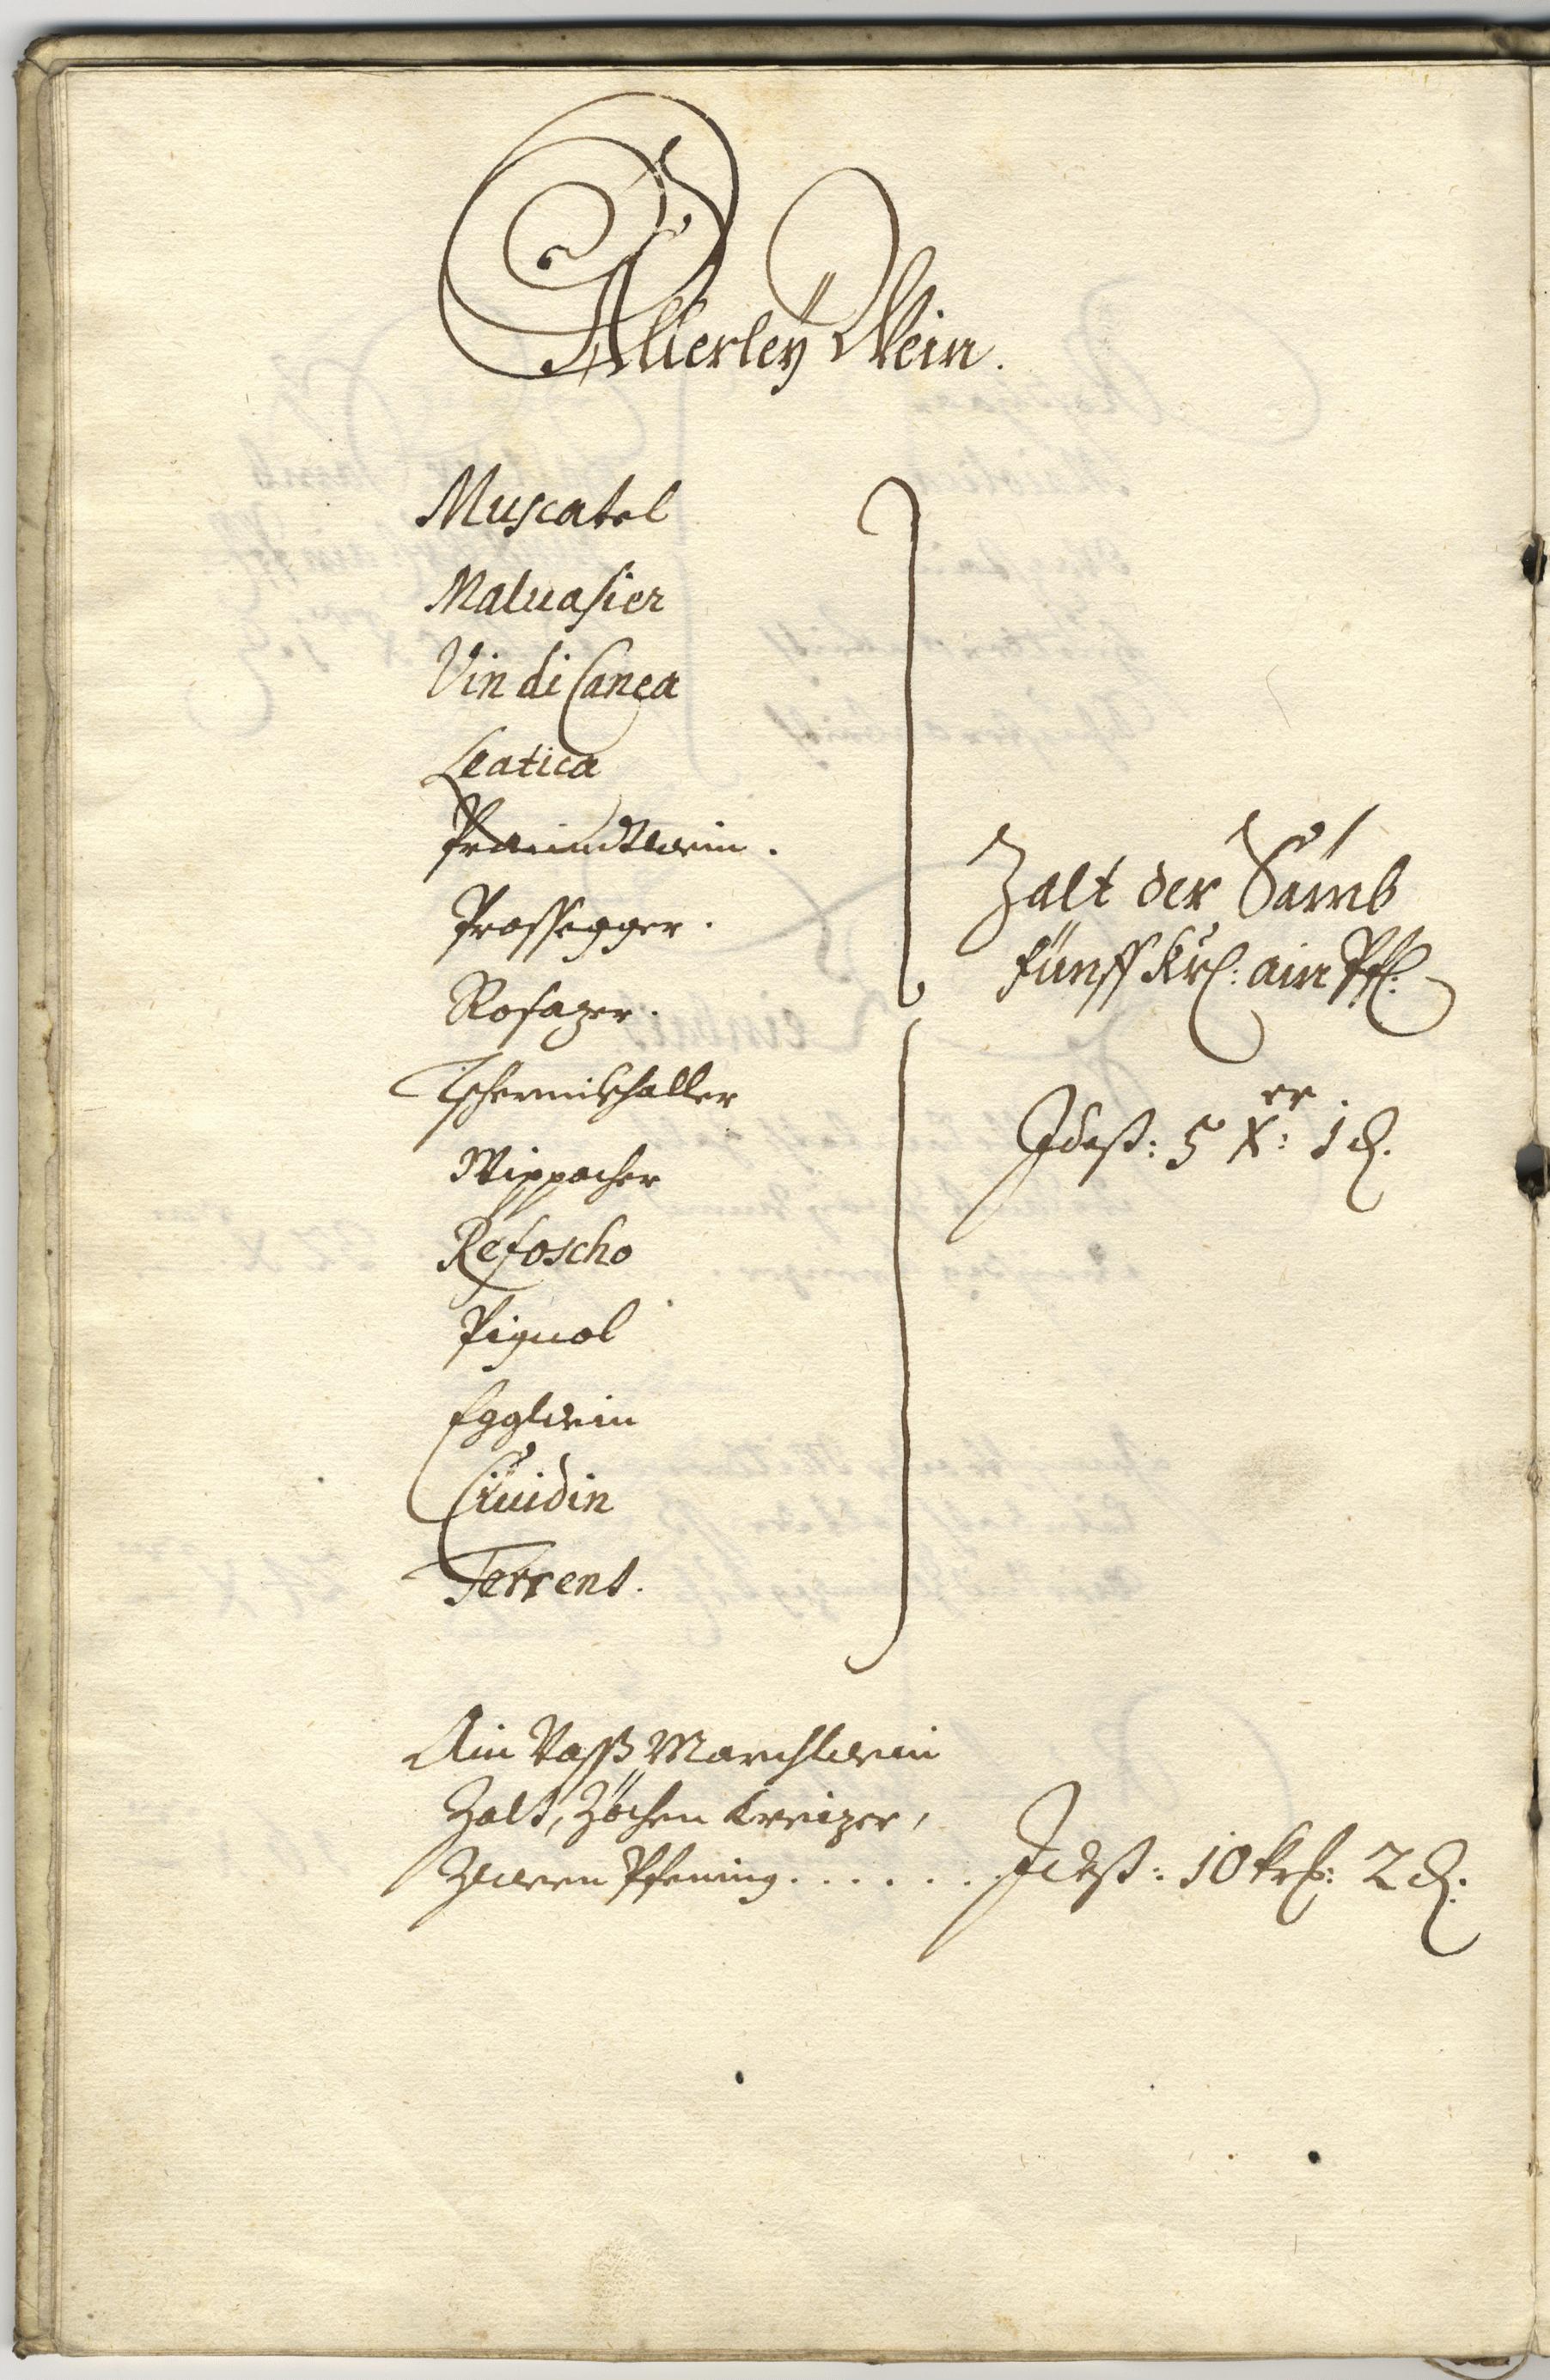 Allerleÿ Wein.
Muscatel
Maluasier
Vin di Canea
Leatica
Prandtwein.
Prossegger.
Rosazer.
Tschernikhaller
Wippacher
Refoscho
Pignol
Eggwein
Ciuidin
Terrent.
Zalt der Sämb
fünff Krl: ain Pfl:
Idest: 5 Xer: 1 ₰.
Ain Vaß Marchwein
Zalt, Zöchen Kreizer,
Zween Pfening . . . . . . Idest: 10 krl: 2 ₰.